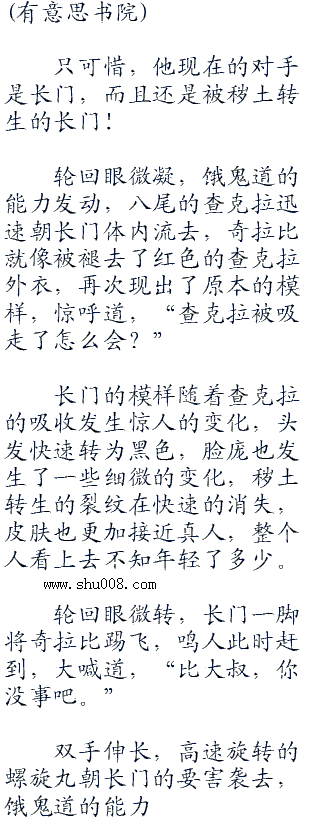 (有意思书院)
只可惜，他现在的对手
是长门，而且还是被秽土转
生的长门！
轮回眼微凝，饿鬼道的
能力发动，八尾的查克拉迅
速朝长门体内流去，奇拉比
就像被褪去了红色的查克拉
外衣，再次现出了原本的模
样，惊呼道，“查克拉被吸
走了怎么会？”
长门的模样随着查克拉
的吸收发生惊人的变化，头
发快速转为黑色，脸庞也发
生了一些细微的变化，秽土
转生的裂纹在快速的消失，
皮肤也更加接近真人，整个
人看上去不知年轻了多少。
www.shu008.com
轮回眼微转，长门一脚
将奇拉比踢飞，鸣人此时赶
到，大喊道，“比大叔，你
没事吧。”
双手伸长，高速旋转的
螺旋九朝长门的要害袭去，
饿鬼道的能力